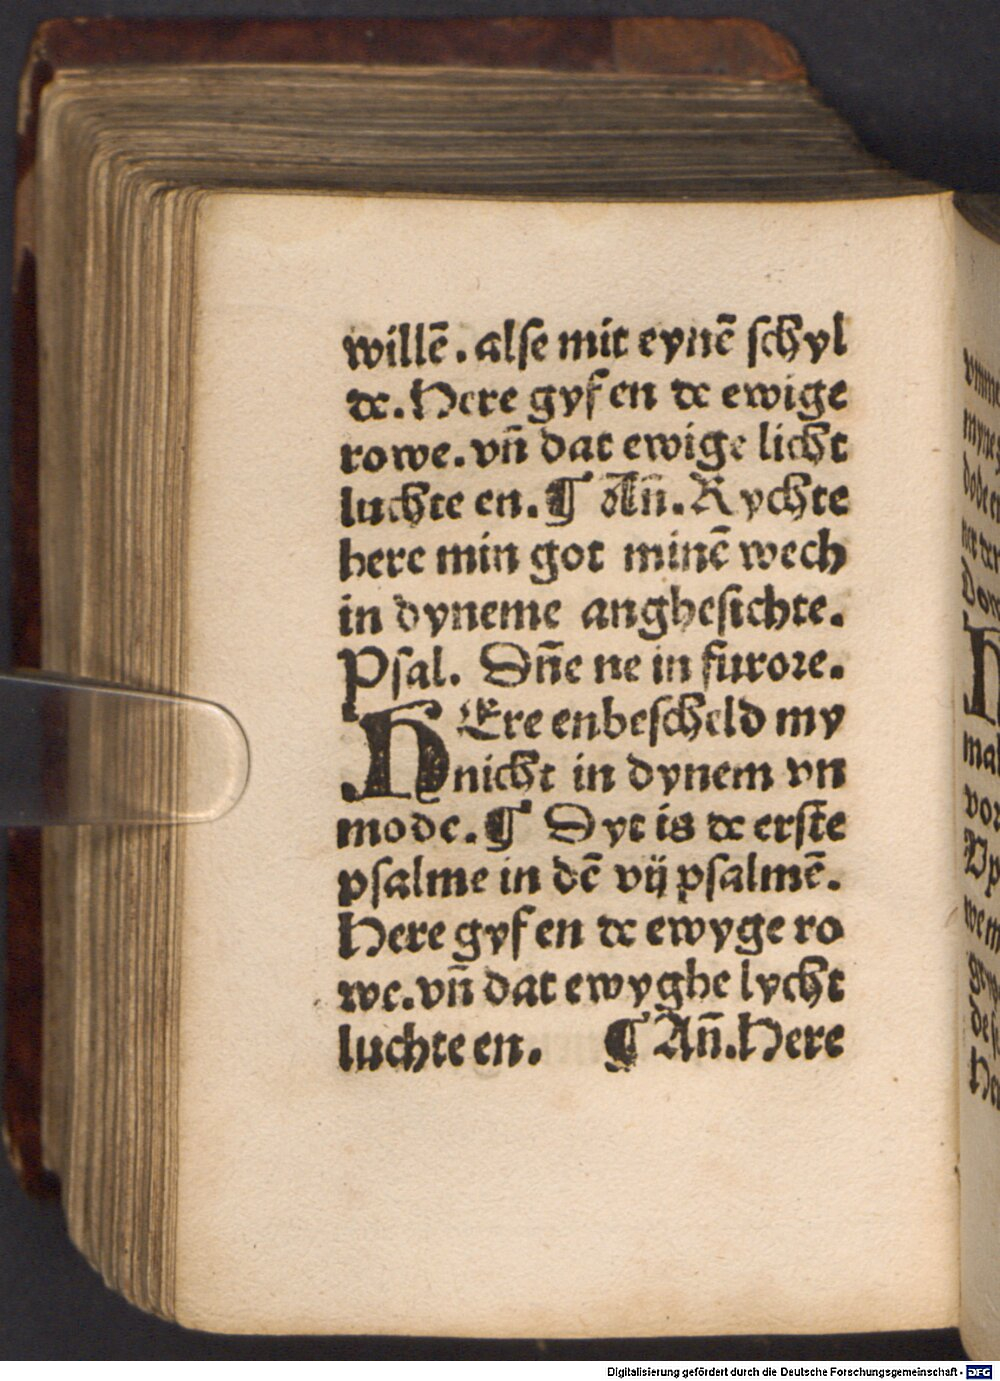 willē. alse mit eynē schyl
de. Here gyf en de ewige
rowe. vn̄ dat ewige licht
luchte en. ¶ An̄. Rychte
here min got minē wech
in dyneme anghesichte.
Psal. Dn̄e ne in furore.
HEre enbescheld my
nicht in dynem vn
mode. ¶ Dyt is de erste
psalme in dē vij psalmē.
Here gyf en de ewyge ro
we. vn̄ dat ewyghe lycht
luchte en. ¶ An̄. Here
Digitalisierung gefördert durch die Deutsche Forschungsgemeinschaft - DFG